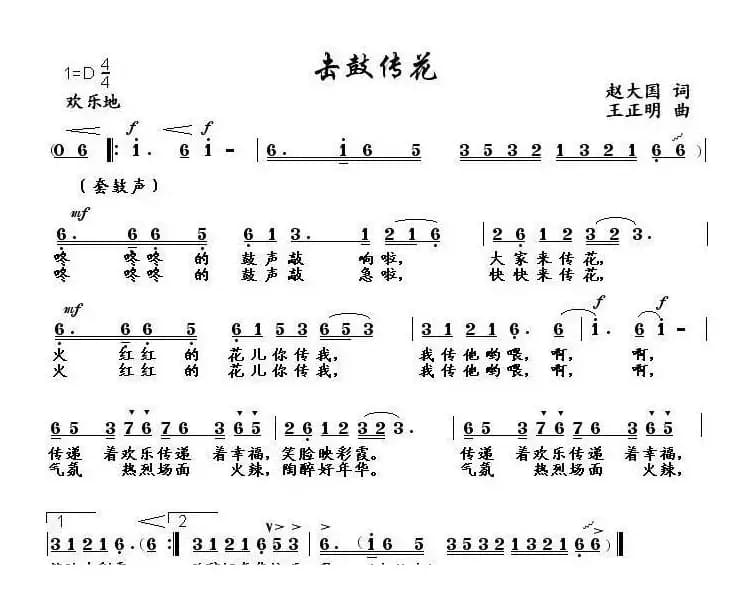 击鼓传花
1=D 4/4
欢乐地
赵大国 词
王正明 曲
f f
(0 6 ‖: i . 6 i – | 6 . i 6 5 3 5 3 2 1 3 2 1 6 6 ) |
(套鼓声)
mf
6 . 6 6 5 6 1 3 . 1 2 1 6 | 2 6 1 2 3 2 3 . |
咚 咚咚 的 鼓声敲 响啦， 大家来传花，
咚 咚咚 的 鼓声敲 急啦， 快快来传花，
mf f f
6 . 6 6 5 6 1 5 3 6 5 3 | 3 1 2 1 6 . 6 | i . 6 i – |
火 红红 的 花儿你传我， 我传他哟喂，啊， 啊，
火 红红 的 花儿你传我， 我传他哟喂，啊， 啊，
6 5 3 7 6 7 6 3 6 5 | 2 6 1 2 3 2 3 . | 6 5 3 7 6 7 6 3 6 5 |
传递 着欢乐传递 着幸福，笑脸映彩霞。 传递 着欢乐传递 着幸福，
气氛 热烈场面 火辣，陶醉好年华。 气氛 热烈场面 火辣，
1 2
3 1 2 1 6 . (6 :‖ 3 1 2 1 6 5 3 | 6 . ( i 6 5 3 5 3 2 1 3 2 1 6 6 ) ‖